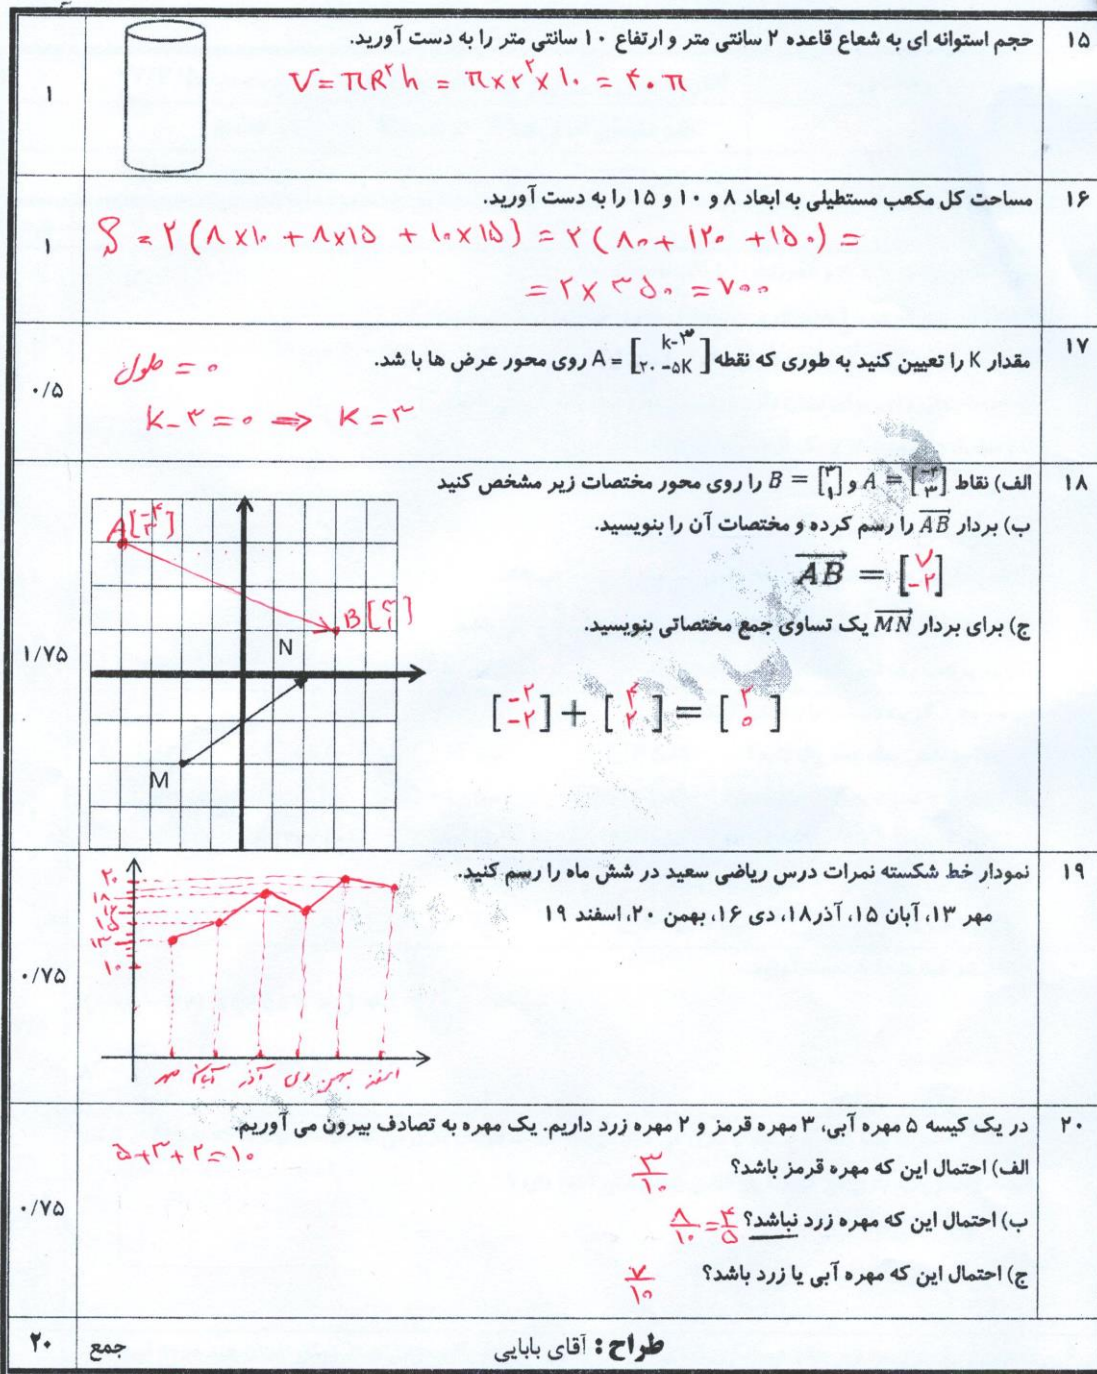 ۱۵ حجم استوانه ای به شعاع قاعده ۲ سانتی متر و ارتفاع ۱۰ سانتی متر را به دست آورید.
V = πR²h = π×۲²×۱۰ = ۴۰π
۱
۱۶ مساحت کل مکعب مستطیلی به ابعاد ۸ و ۱۰ و ۱۵ را به دست آورید.
S = ۲(۸×۱۰ + ۸×۱۵ + ۱۰×۱۵) = ۲(۸۰ + ۱۲۰ + ۱۵۰) =
= ۲×۳۵۰ = ۷۰۰
۱
۱۷ مقدار K را تعیین کنید به طوری که نقطه A = [k-۳ ۲۰-۵K] روی محور عرض ها با شد.
طول = ۰
k-۳ = ۰ ⇒ K = ۳
۰/۵
۱۸ الف) نقاط A = [-۴ ۳] و B = [۳ ۱] را روی محور مختصات زیر مشخص کنید
ب) بردار AB را رسم کرده و مختصات آن را بنویسید.
AB = [۷ -۲]
ج) برای بردار MN یک تساوی جمع مختصاتی بنویسید.
[-۲ -۲] + [۴ ۲] = [۲ ۰]
A[-۴ ۳]
B[۳ ۱]
N
M
۱/۷۵
۱۹ نمودار خط شکسته نمرات درس ریاضی سعید در شش ماه را رسم کنید.
مهر ۱۳، آبان ۱۵، آذر۱۸، دی ۱۶، بهمن ۲۰، اسفند ۱۹
۲۰
۱۸
۱۵
۱۳
۱۰
مهر آبان آذر دی بهمن اسفند
۰/۷۵
۲۰ در یک کیسه ۵ مهره آبی، ۳ مهره قرمز و ۲ مهره زرد داریم. یک مهره به تصادف بیرون می آوریم.
۵+۳+۲=۱۰
الف) احتمال این که مهره قرمز باشد؟ ۳/۱۰
ب) احتمال این که مهره زرد نباشد؟ ۸/۱۰ = ۴/۵
ج) احتمال این که مهره آبی یا زرد باشد؟ ۷/۱۰
۰/۷۵
طراح : آقای بابایی
جمع ۲۰